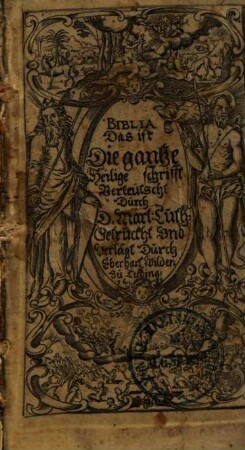 BIBLIA
Das ist
Die gantze
Heilige schrifft
Verteutscht
Durch
D. Mart: Luth:
Getruckt Vnd
Verlagt Durch
Eberhart Wilden
Zu Tubing: